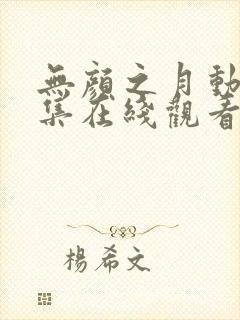 無顏之月動
集在綫觀看
楊希文